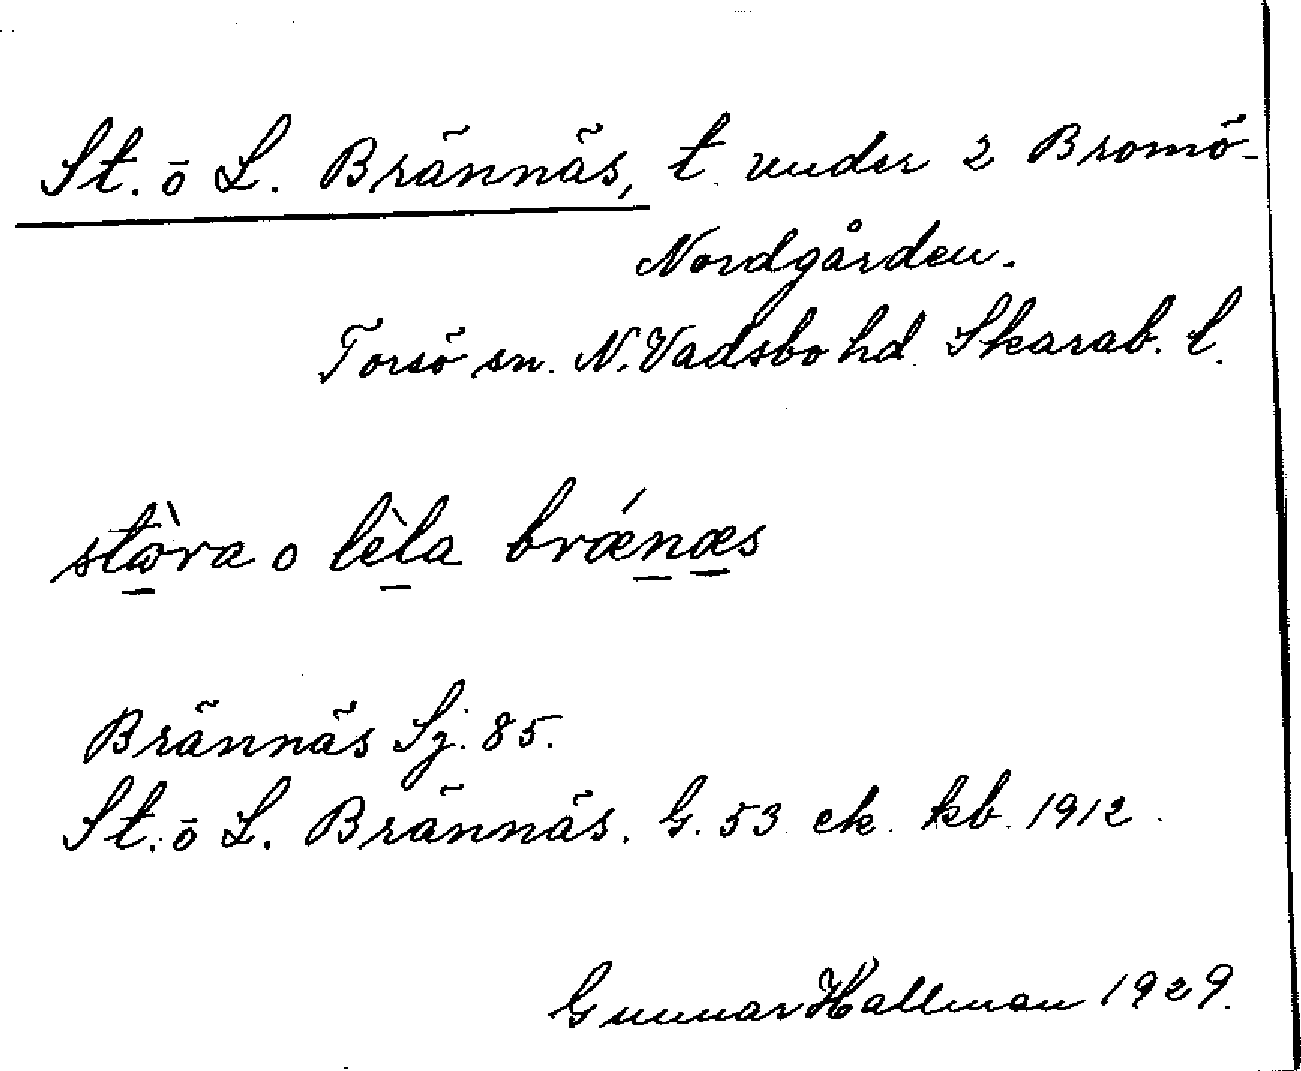 St. o L. Brännäs, t. under 2 Bromö-
Nordgården.
Torsö sn. N. Vadsbo hd. Skarab. l.
stòra o lèla brǽnæs
Brännäs Sj. 85.
St. o L. Brännäs. G. 53 ek. kb. 1912.
Gunnar Hallman 1929.